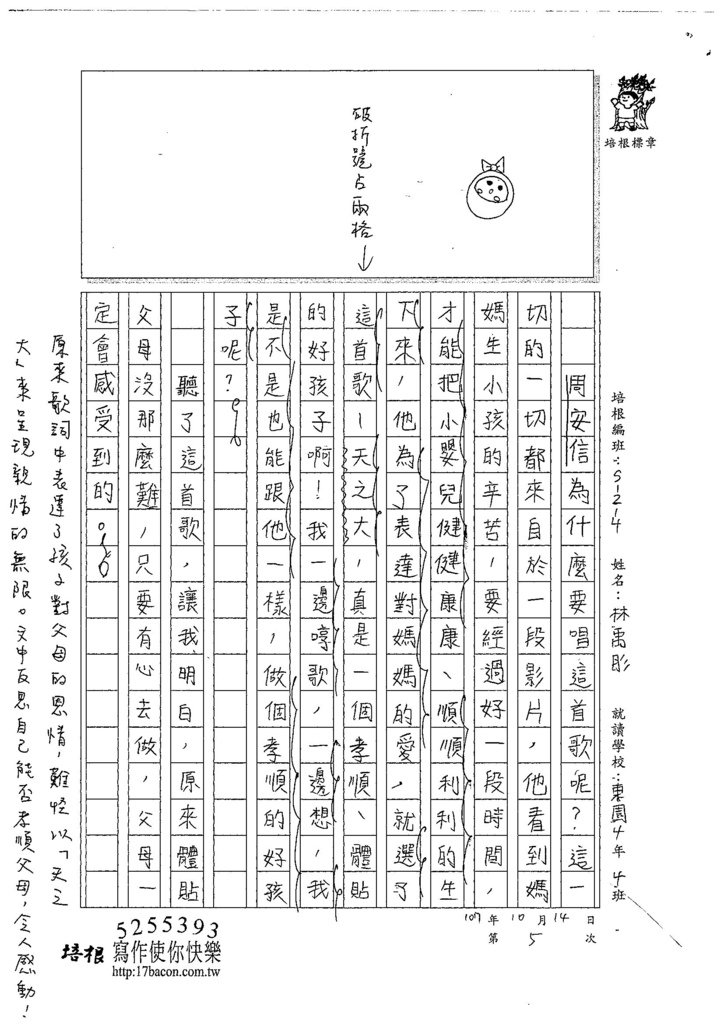 培根標章
破折號占兩格→
培根編班：S-1-2-4 姓名：林禹彤 就讀學校：東園4年4班
107年10月14日
第5次
周安信為什麼要唱這首歌呢？這一
切的一切都來自於一段影片，他看到媽
媽生小孩的辛苦，要經過好一段時間，
才能把小嬰兒健健康康、順順利利的生
下來，他為了表達對媽媽的愛，就選了
這首歌—天之大，真是一個孝順、體貼
的好孩子啊！我一邊哼歌，一邊想，我
是不是也能跟他一樣，做個孝順的好孩
子呢？
聽了這首歌，讓我明白，原來體貼
父母沒那麼難，只要有心去做，父母一
定會感受到的。
原來歌詞中表達了孩子對父母的恩情，難怪以「天之
大」來呈現親情的無限。文中反思自己能否孝順父母，令人感動！
5255393
培根 寫作使你快樂
http:17bacon.com.tw